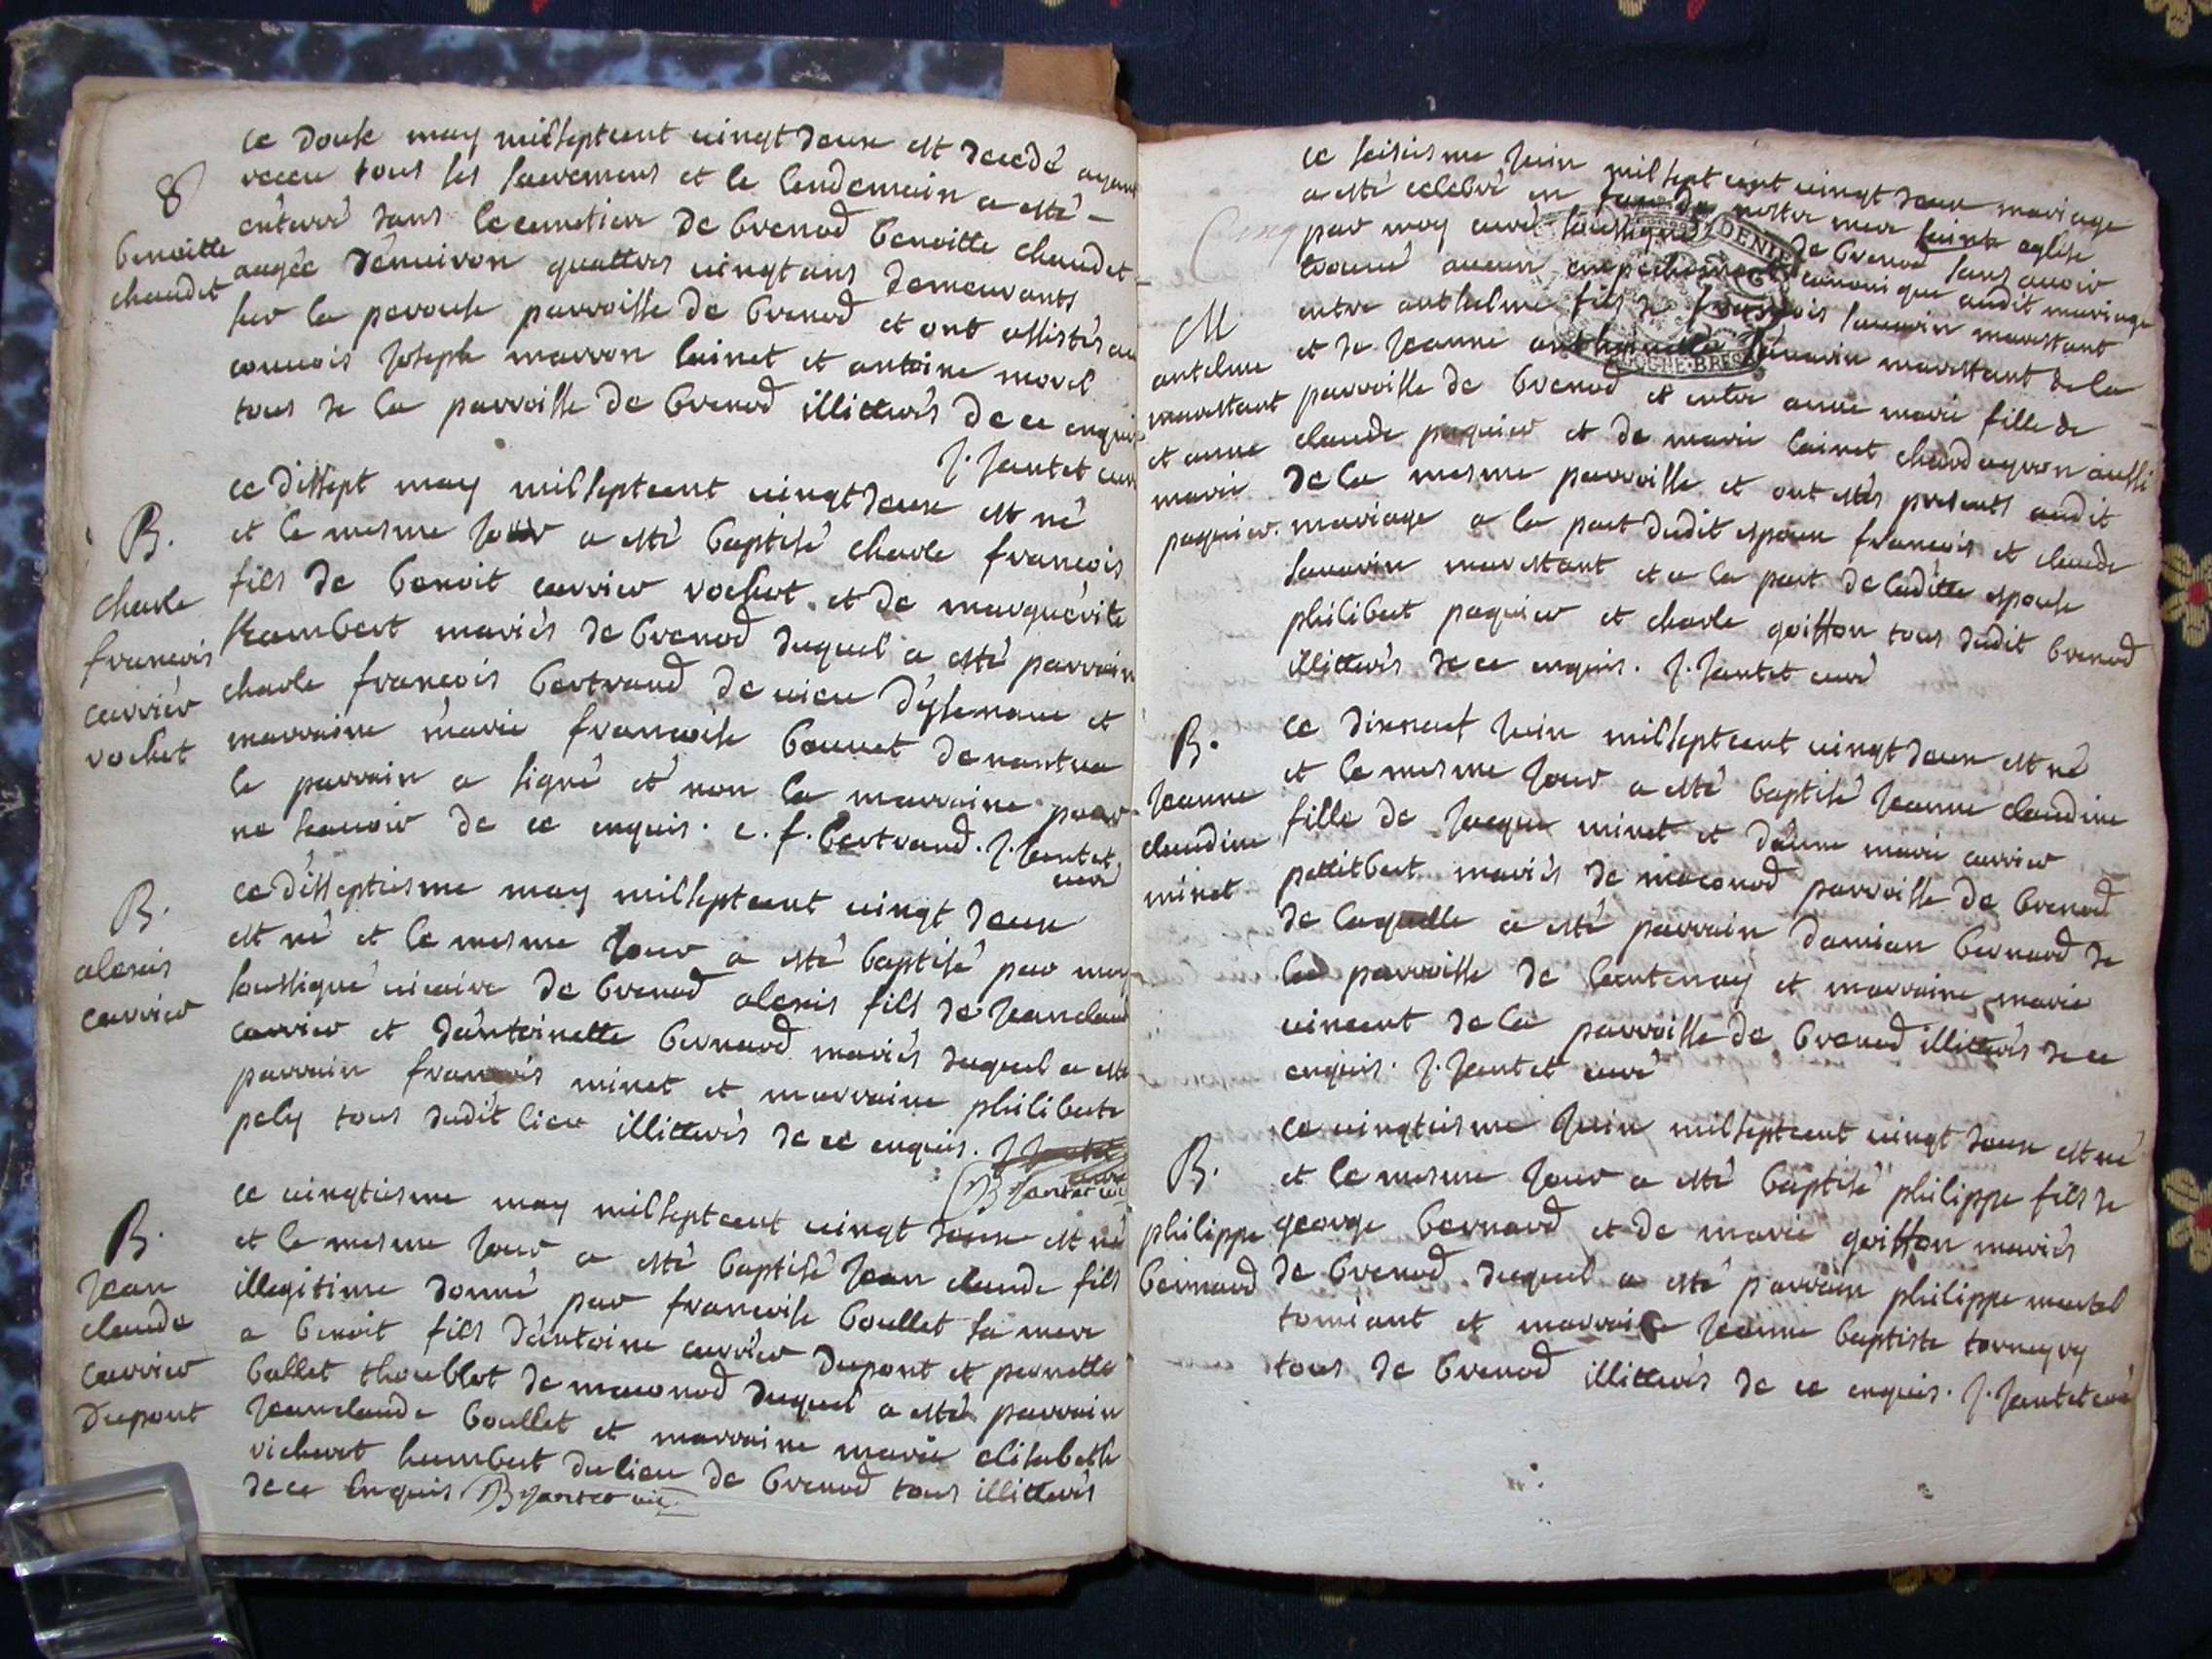 ce douse may mil septcent vingt deux est decedé ayant
receu tous ses sacremens et le lendemain a esté
enterré dans le cemetiere de brenod benoitte chaudet
8
benoitte
chaudet
aagée d'enuiron quattres vingt ans demeurants
sur la perouse parroisse de brenod et ont assistés au
conuois joseph marron lainet et antoine morel
tous de la parroisse de brenod illitterés de ce enquis
J. Jantet curé
B.
charle
francois
carrier
rochet
ce dissept may mil septcent vingt deux est né
et le mesme jour a esté baptisé charle francois
fils de benoit carrier rochet et de marguerite
humbert mariés de brenod duquel a esté parrain
charle francois bertrand de vieu d'ysenaue et
marraine marie francoise bonnet de nantua
le parrain a signé et non la marraine pour
ne scauoir de ce enquis. c. f. bertrand. J. Jantet
curé
B.
alexis
carrier
ce disseptiesme may mil septcent vingt deux
est né et le mesme jour a esté baptisé par moy
soussigné vicaire de brenod alexis fils de jean claude
carrier et d'antoinette bernard mariés duquel a esté
parrain francois minet et marraine philiberte
pely tous dudit lieu illitterés de ce enquis. J Jantet
curé
B Jantet vic
B.
jean
claude
carrier
dupont
ce vingtiesme may mil septcent vingt deux est né
et le mesme jour a esté baptisé jean claude fils
illegitime donné par francoise boullet sa mere
a benoit fils d'antoine carrier dupont et pernette
ballet thoublot de maconod duquel a esté parrain
jean claude boullet et marraine marie elisabeth
richeret humbert du lieu de brenod tous illitterés
de ce enquis B Jantet vic
ce seisiesme juin mil sept cent vingt deux mariage
a esté celebré en face de nostre mere sainte eglise
par moy curé soussigné de brenod sans auoir
trouué aucun empechement canonique audit mariage
M
antelme
marestant
et anne
marie
paquier.
entre anthelme fils de francois sauarin marestant
et de jeanne sauarin marestant de la
parroisse de brenod et entre anne marie fille de
claude paquier et de marie lainet chardeyron aussi
de la mesme parroisse et ont estés presents audit
mariage a la part dudit espoux francois et claude
sauarin marestant et a la part de laditte espouse
philibert paquier et charle goiffon tous dudit brenod
illitterés de ce enquis. J. Jantet curé
B.
jeanne
claudine
minet
ce dixneuf juin mil septcent vingt deux est né
et le mesme jour a esté baptisé jeanne claudine
fille de jacque minet et d'anne marie carrier
pettitbert mariés de maconod parroisse de brenod
de laquelle a esté parrain damian bernard de
la parroisse de lantenay et marraine marie
vincent de la parroisse de brenod illitterés de ce
enquis. J. Jantet curé
B.
philippe
bernard
ce vingtiesme juin mil septcent vingt deux est né
et le mesme jour a esté baptisé philippe fils de
george bernard et de marie goiffon mariés
de brenod duquel a esté parrain philippe martel
tomiant et marraine jeanne baptiste torneyry
tous de brenod illitterés de ce enquis. J. Jantet curé